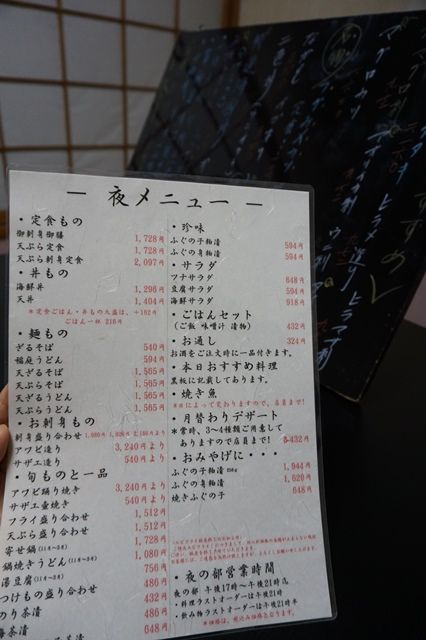 ― 夜メニュー ―
・定食もの
御刺身御膳 1,728円
天ぷら定食 1,728円
天ぷら刺身定食 2,097円
・丼もの
海鮮丼 1,296円
天丼 1,404円
＊定食ごはん・丼もの大盛は、+162円
ごはん一杯 216円
・麺もの
ざるそば 540円
稲庭うどん 594円
天ざるそば 1,565円
天ぷらそば 1,565円
天ざるうどん 1,565円
天ぷらうどん 1,565円
・お刺身もの
刺身盛り合わせ
アワビ造り 3,240円より
サザエ造り 540円より
・旬ものと一品
アワビ踊り焼き 3,240円より
サザエ壷焼き 540円より
フライ盛り合わせ 1,512円
天ぷら盛り合わせ 1,512円
寄せ鍋(11月～3月) 1,728円
鍋焼きうどん(11月～3月) 1,080円
湯豆腐(11月～3月) 756円
つけもの盛り合わせ 486円
のり茶漬 432円
海茶漬 486円
648円
・珍味
ふぐの子粕漬 594円
ふぐの身粕漬 594円
・サラダ
ツナサラダ 648円
豆腐サラダ 594円
海鮮サラダ 918円
・ごはんセット
(ご飯 味噌汁 漬物) 432円
・お通し 324円
お酒をご注文時に一品付きます。
・本日おすすめ料理
黒板に記載してあります。
・焼き魚
＊日によって変わりますので、店員まで!
・月替わりデザート
＊常時、3～4種類ご用意して
ありますので店員まで! 432円
・おみやげに・・・
ふぐの子粕漬 1,944円
ふぐの身粕漬 1,620円
焼きふぐの子 648円
・夜の部営業時間
夜の部 午後17時～午後21時迄
・料理ラストオーダーは午後21時
・飲み物ラストオーダーは午後21時半
＊価格は、税込み価格となります。